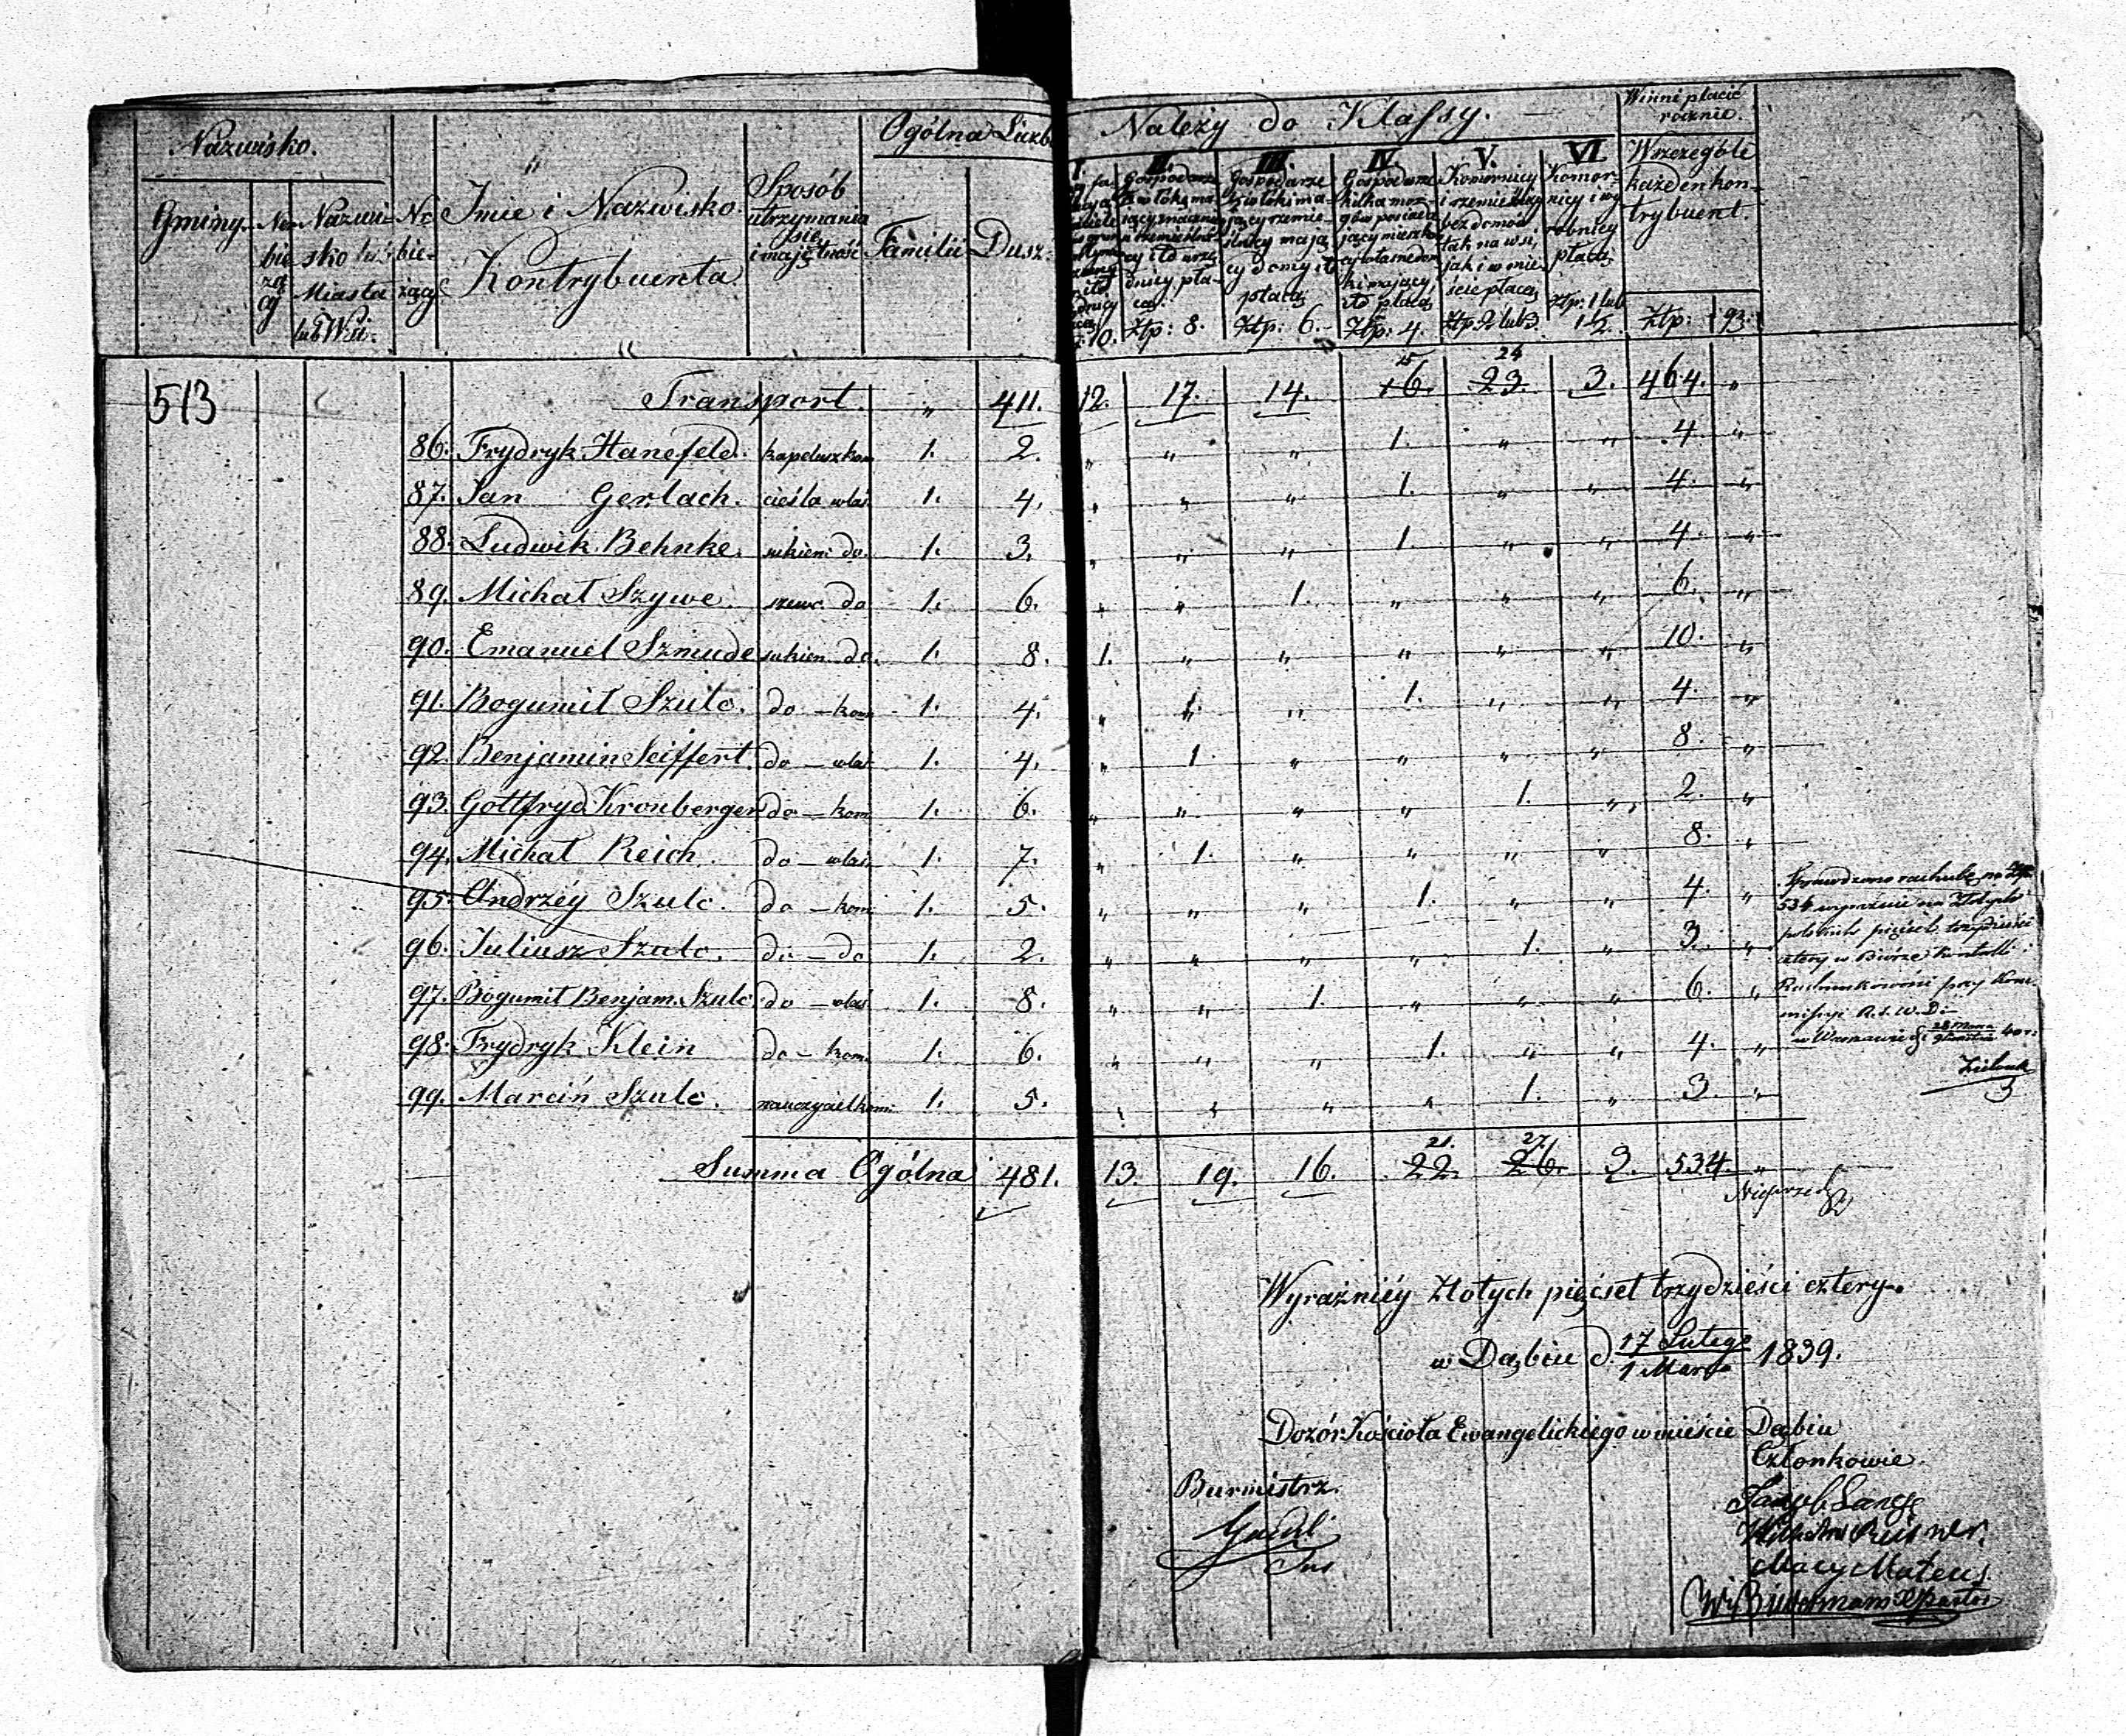 Nazwisko.
Gminy.
No bieżący
Nazwisko Miasta lub Wsi.
No bieżący
Imie i Nazwisko Kontrybuenta
Sposób utrzymania się i majętność
Ogólna Liczb.
Familii
Dusz.
Należy do Klassy.
I.
10.
II. Gospodarze
Ztp: 8.
III. Gospodarze
płacą
Ztp: 6.
IV. Gospodarze kilka mor-
Ztp: 4.
V. Komornicy i rzemieślnicy bez domów tak na wsi, jak i w mieście płacą
Ztp. 2 lub 3.
VI. Komornicy i wyrobnicy płacą
Ztp: 1 lub 1½.
Winni płacić rocznie.
Wszczególe każden kontrybuent.
Ztp: gr:
513
Transport. „ 411. 12. 17. 14. 16. 15 23. 24 3. 464. „
86. Frydryk Hanefeld. kapelusz kom 1. 2. „ „ „ 1. „ „ 4. „
87. Jan Gerlach. cieśla właś. 1. 4. „ „ „ 1. „ „ 4. „
88. Ludwik Behnke. sukien: do. 1. 3. „ „ „ 1. „ „ 4. „
89. Michał Szywe. szewc do 1. 6. „ „ 1. „ „ „ 6. „
90. Emanuel Szmude sukien. do. 1. 8. 1. „ „ „ „ „ 10. „
91. Bogumił Szulc. do – kom 1. 4. „ 1. „ 1. „ „ 4. „
92. Benjamin Seiffert. do – właś 1. 4. „ 1. „ „ „ „ 8. „
93. Gottfryd Kronberger do – kom 1. 6. „ „ „ „ 1. „ 2. „
94. Michał Reich. do – właś. 1. 7. „ 1. „ „ „ „ 8. „
95. Andrzéy Szulc. do – kom 1. 5. „ „ „ 1. „ „ 4. „
96. Juliusz Szulc. do – do 1. 2. „ „ „ „ 1. „ 3. „
97. Bogumił Benjam. Szulc do – właś 1. 8. „ „ 1. „ „ „ 6. „
98. Frydryk Klein do – kom. 1. 6. „ „ „ 1. „ „ 4. „
99. Marciń Szulc. nauczyciel kom: 1. 5. „ „ „ „ 1. „ 3. „
Summa Ogólna 481. 13. 19. 16. 22. 21. 26. 27. 3. 534. „
Sprawdzono rachubę na Złp
534 wyraźnie na Złotych
polskich pięćset trzydzieści
cztery w Biórze Kontrolli i
Rachunkowości przy Kom-
missyi R. S. W. D.
w Warszawie d.
Wyraźniéy Złotych pięćset trzydzieści cztery.
w Dąbiu d. 17 Lutego / 1 Marca 1839.
Dozór Kościoła Ewangelickiego w mieście Dąbiu
Członkowie.
Burmistrz.
Jakob Lange
Wilhelm
Macy Mateus
W. Biedermann Pastor